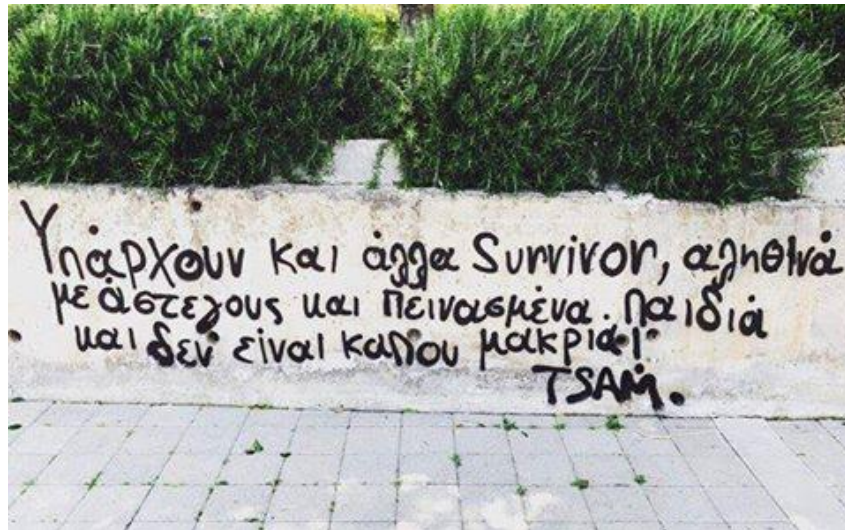 Υπάρχουν και άλλα Survivor, αληθινά
με άστεγους και πεινασμένα. παιδιά
και δεν είναι κάπου μακριά!
TSAM.